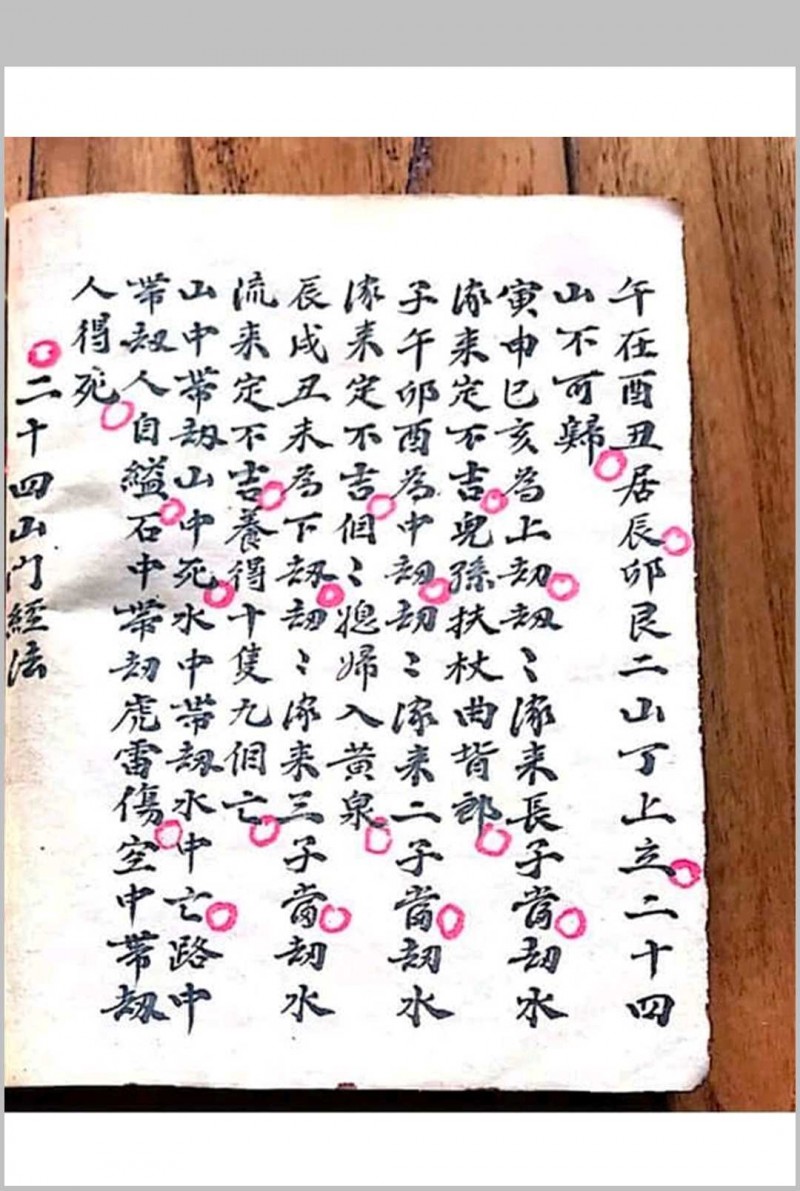 午在酉丑居辰卯艮二山丁上立二十四
山不可歸
寅申巳亥為上劫劫〻滚来長子當劫水
滚来定不吉兒孫扶杖曲背郎
子午卯酉為中劫劫〻滚来二子當劫水
滚来定不吉個〻媳婦入黄泉
辰戌丑未為下劫劫〻滚来三子當劫水
流来定不吉養得十隻九個亡
山中帶劫山中死水中帶劫水中亡路中
帶劫人自縊石中帶劫虎雷傷空中帶劫
人得死
二十四山門經法